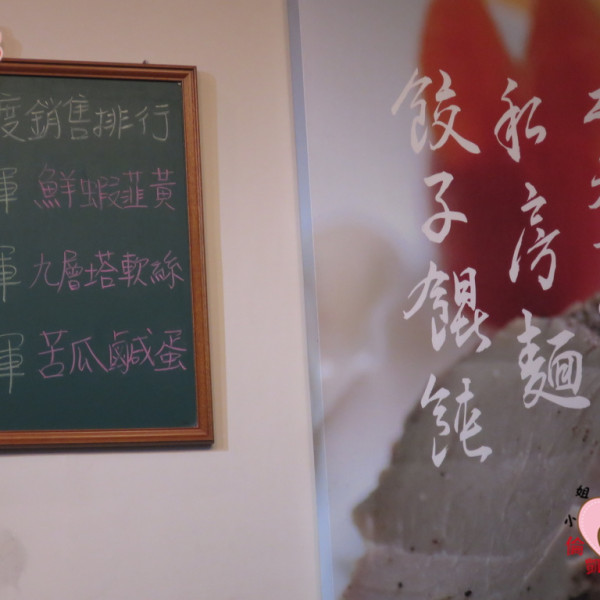 度銷售排行
軍 鮮蝦韮黃
軍 九層塔軟絲
軍 苦瓜鹹蛋
私房麵
餃子餛飩
小姐